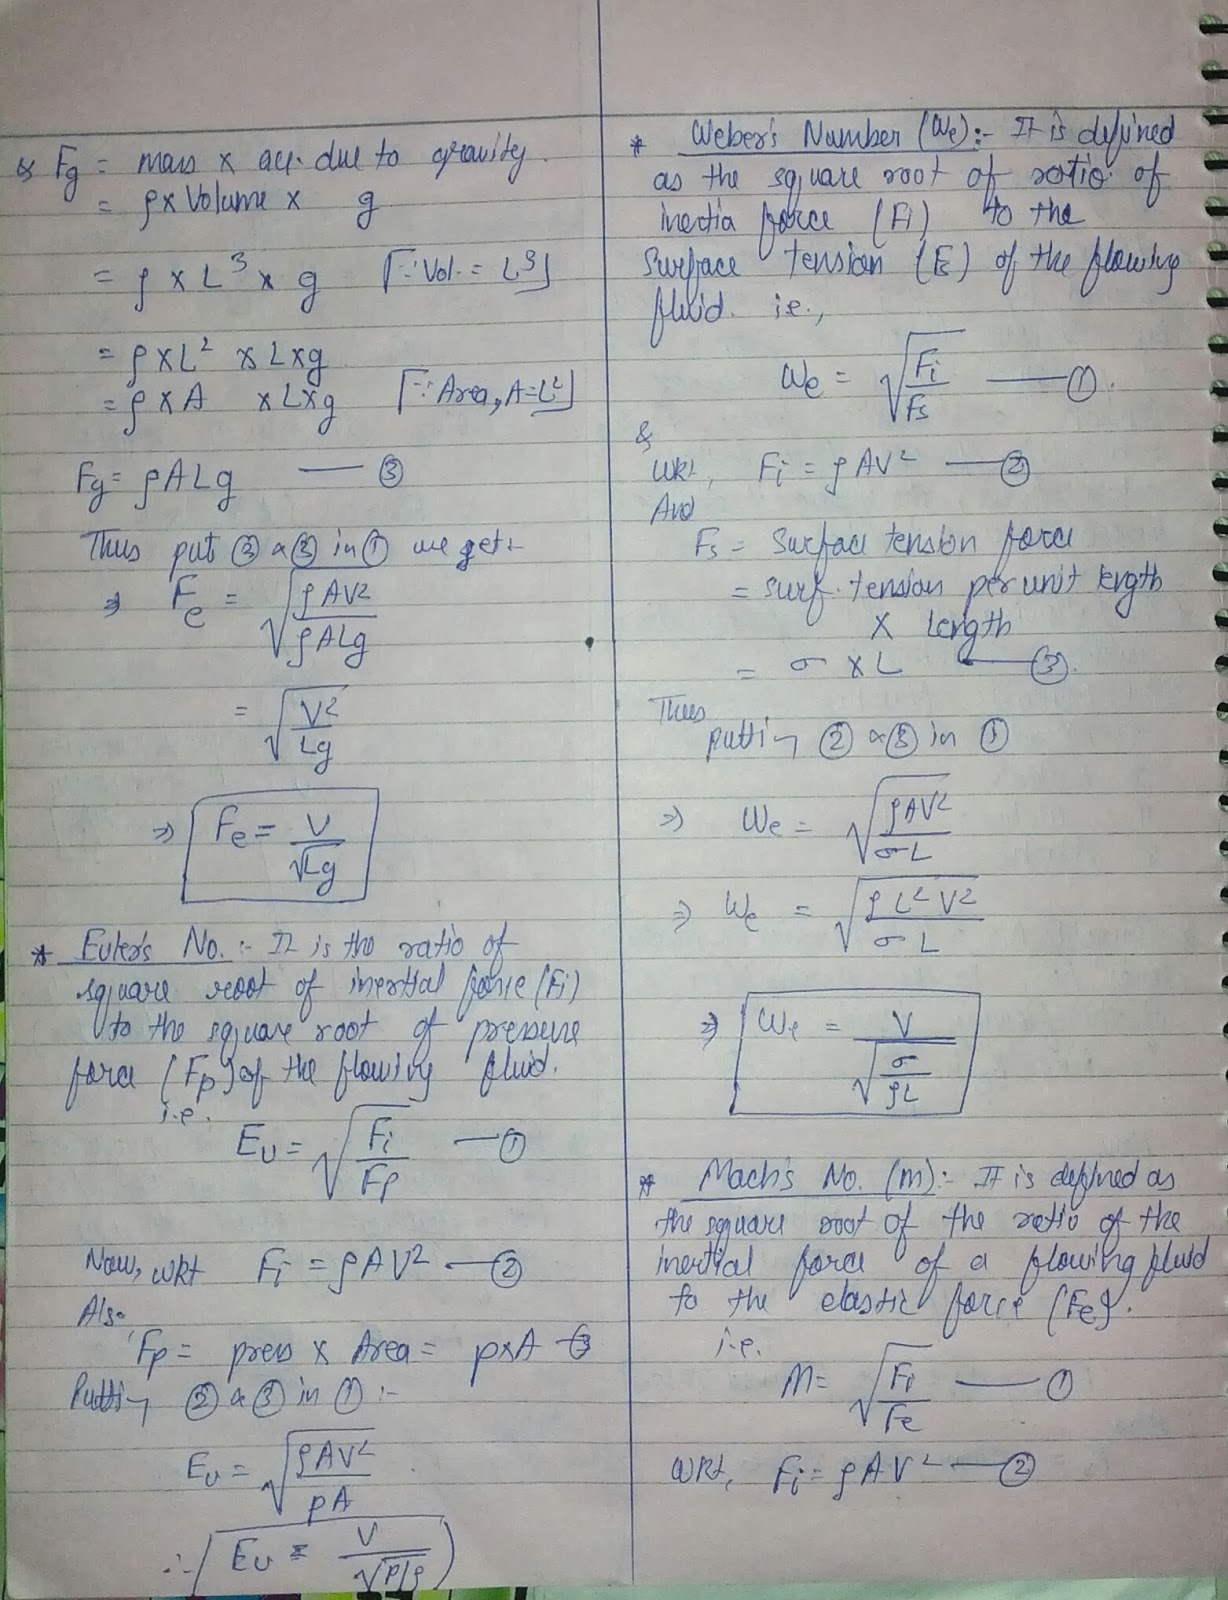 & Fg = mass x acc. due to gravity.
= ρ x Volume x g
= ρ x L³ x g [∵ Vol. = L³]
= ρ x L² x L x g
= ρ x A x L x g [∵ Area, A = L²]
Fg = ρALg — ③
Thus put ② & ③ in ① we get:-
⇒ Fe = √(ρAV²/ρALg)
= √(V²/Lg)
⇒ Fe = V/√Lg
* Euler's No. :- It is the ratio of
square root of inertial force (Fi)
to the square root of pressure
force (Fp) of the flowing fluid.
i.e.
Eu = √(Fi/Fp) — ①
Now, WKT Fi = ρAV² — ②
Also
Fp = press x Area = p x A — ③
Putting ② & ③ in ① :-
Eu = √(ρAV²/pA)
∴ Eu = V/√p/ρ
* Weber's Number (We) :- It is defined
as the square root of ratio of
inertia force (Fi) to the
Surface tension (Fs) of the flowing
fluid. i.e.,
We = √(Fi/Fs) — ①.
&
WKT, Fi = ρAV² — ②
And
Fs = Surface tension force
= surf. tension per unit length
x Length
= σ x L — ③.
Thus
putting ② & ③ in ①
⇒ We = √(ρAV²/σL)
⇒ We = √(ρL²V²/σL)
⇒ We = V/√(σ/ρL)
* Mach's No. (M) :- It is defined as
the square root of the ratio of the
inertial force of a flowing fluid
to the elastic force (Fe).
i.e.
M = √(Fi/Fe) — ①
WKT, Fi = ρAV² — ②